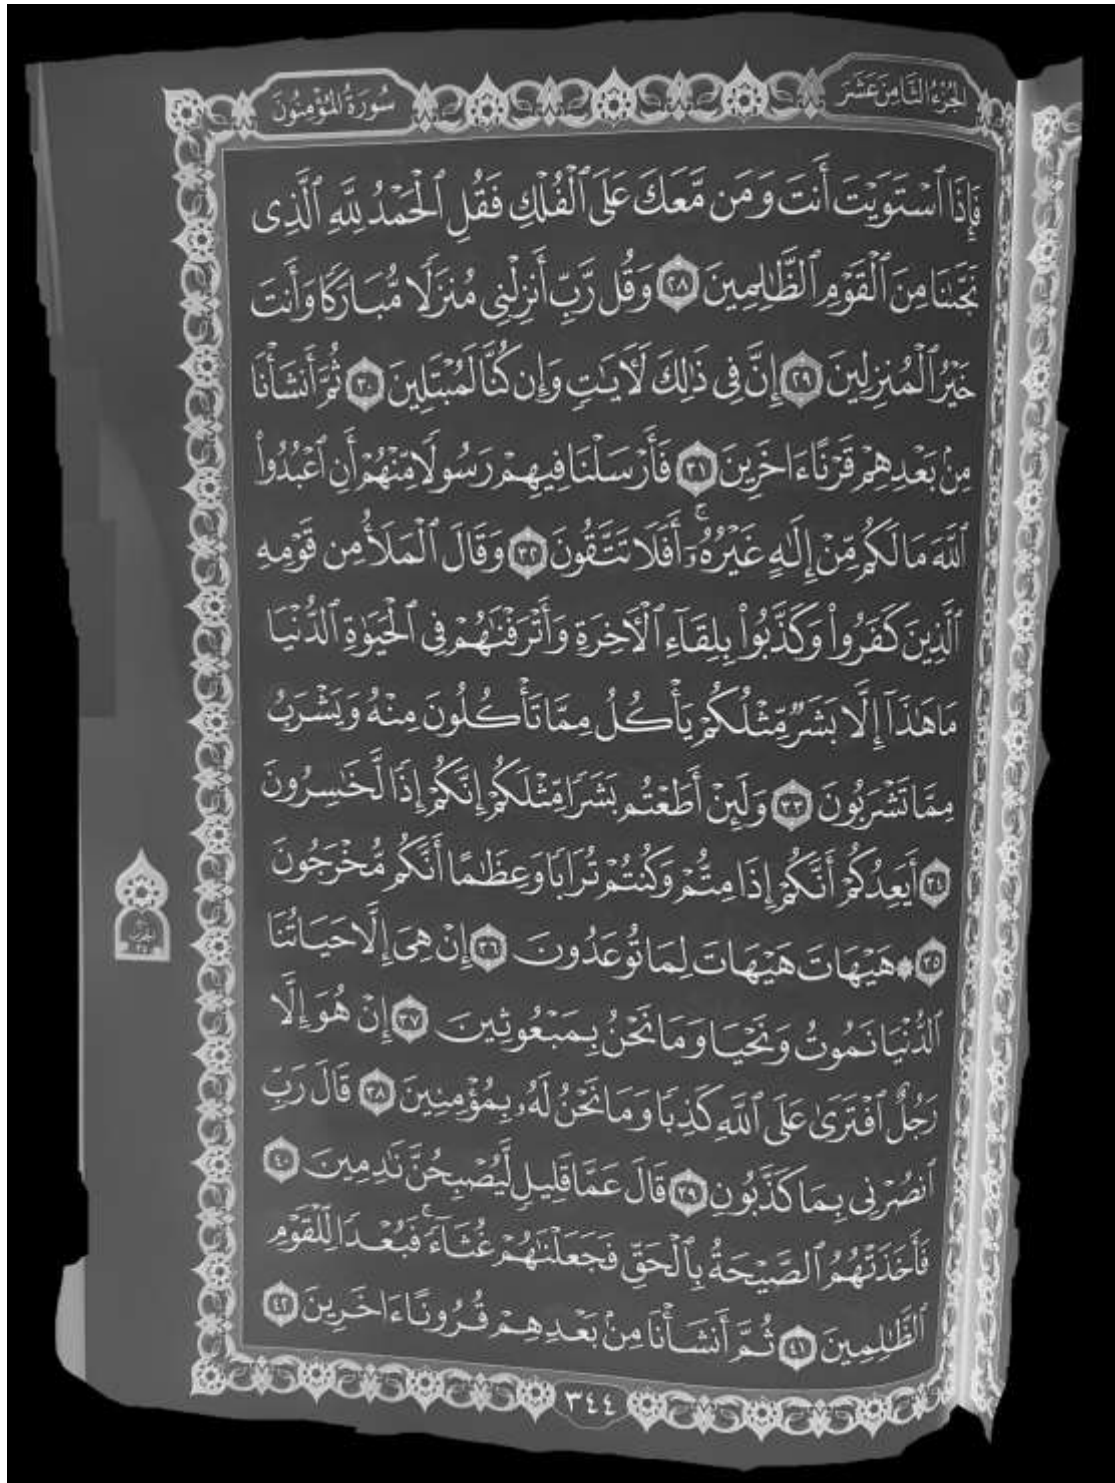 الجزء الثامن عشر
سورة المؤمنون
فَإِذَا ٱسْتَوَيْتَ أَنتَ وَمَن مَّعَكَ عَلَى ٱلْفُلْكِ فَقُلِ ٱلْحَمْدُ لِلَّهِ ٱلَّذِى
نَجَّىٰنَا مِنَ ٱلْقَوْمِ ٱلظَّـٰلِمِينَ ٢٨ وَقُل رَّبِّ أَنزِلْنِى مُنزَلًا مُّبَارَكًا وَأَنتَ
خَيْرُ ٱلْمُنزِلِينَ ٢٩ إِنَّ فِى ذَٰلِكَ لَـَٔايَـٰتٍ وَإِن كُنَّا لَمُبْتَلِينَ ٣٠ ثُمَّ أَنشَأْنَا
مِنۢ بَعْدِهِمْ قَرْنًا ءَاخَرِينَ ٣١ فَأَرْسَلْنَا فِيهِمْ رَسُولًا مِّنْهُمْ أَنِ ٱعْبُدُوا۟
ٱللَّهَ مَا لَكُم مِّنْ إِلَـٰهٍ غَيْرُهُۥٓ ۚ أَفَلَا تَتَّقُونَ ٣٢ وَقَالَ ٱلْمَلَأُ مِن قَوْمِهِ
ٱلَّذِينَ كَفَرُوا۟ وَكَذَّبُوا۟ بِلِقَآءِ ٱلْـَٔاخِرَةِ وَأَتْرَفْنَـٰهُمْ فِى ٱلْحَيَوٰةِ ٱلدُّنْيَا
مَا هَـٰذَآ إِلَّا بَشَرٌ مِّثْلُكُمْ يَأْكُلُ مِمَّا تَأْكُلُونَ مِنْهُ وَيَشْرَبُ
مِمَّا تَشْرَبُونَ ٣٣ وَلَئِنْ أَطَعْتُم بَشَرًا مِّثْلَكُمْ إِنَّكُمْ إِذًا لَّخَـٰسِرُونَ
٣٤ أَيَعِدُكُمْ أَنَّكُمْ إِذَا مِتُّمْ وَكُنتُمْ تُرَابًا وَعِظَـٰمًا أَنَّكُم مُّخْرَجُونَ
٣٥ ۞ هَيْهَاتَ هَيْهَاتَ لِمَا تُوعَدُونَ ٣٦ إِنْ هِىَ إِلَّا حَيَاتُنَا
ٱلدُّنْيَا نَمُوتُ وَنَحْيَا وَمَا نَحْنُ بِمَبْعُوثِينَ ٣٧ إِنْ هُوَ إِلَّا
رَجُلٌ ٱفْتَرَىٰ عَلَى ٱللَّهِ كَذِبًا وَمَا نَحْنُ لَهُۥ بِمُؤْمِنِينَ ٣٨ قَالَ رَبِّ
ٱنصُرْنِى بِمَا كَذَّبُونِ ٣٩ قَالَ عَمَّا قَلِيلٍ لَّيُصْبِحُنَّ نَـٰدِمِينَ ٤٠
فَأَخَذَتْهُمُ ٱلصَّيْحَةُ بِٱلْحَقِّ فَجَعَلْنَـٰهُمْ غُثَآءً ۚ فَبُعْدًا لِّلْقَوْمِ
ٱلظَّـٰلِمِينَ ٤١ ثُمَّ أَنشَأْنَا مِنۢ بَعْدِهِمْ قُرُونًا ءَاخَرِينَ ٤٢
٣٤٤